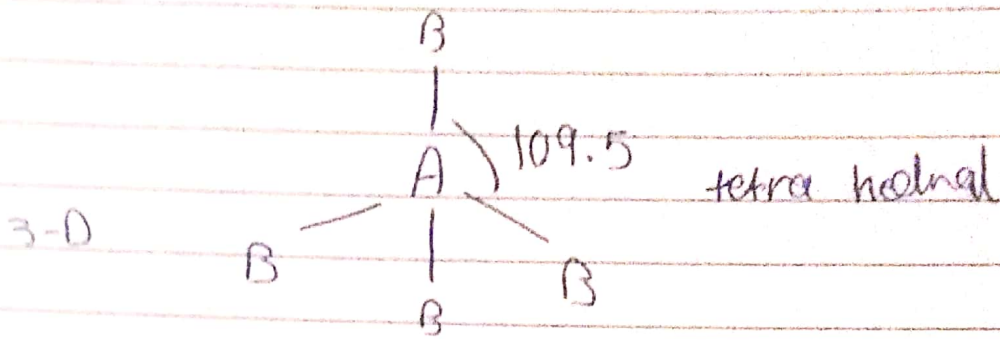 B
109.5
A
tetra hednal
3-D
B
B
B